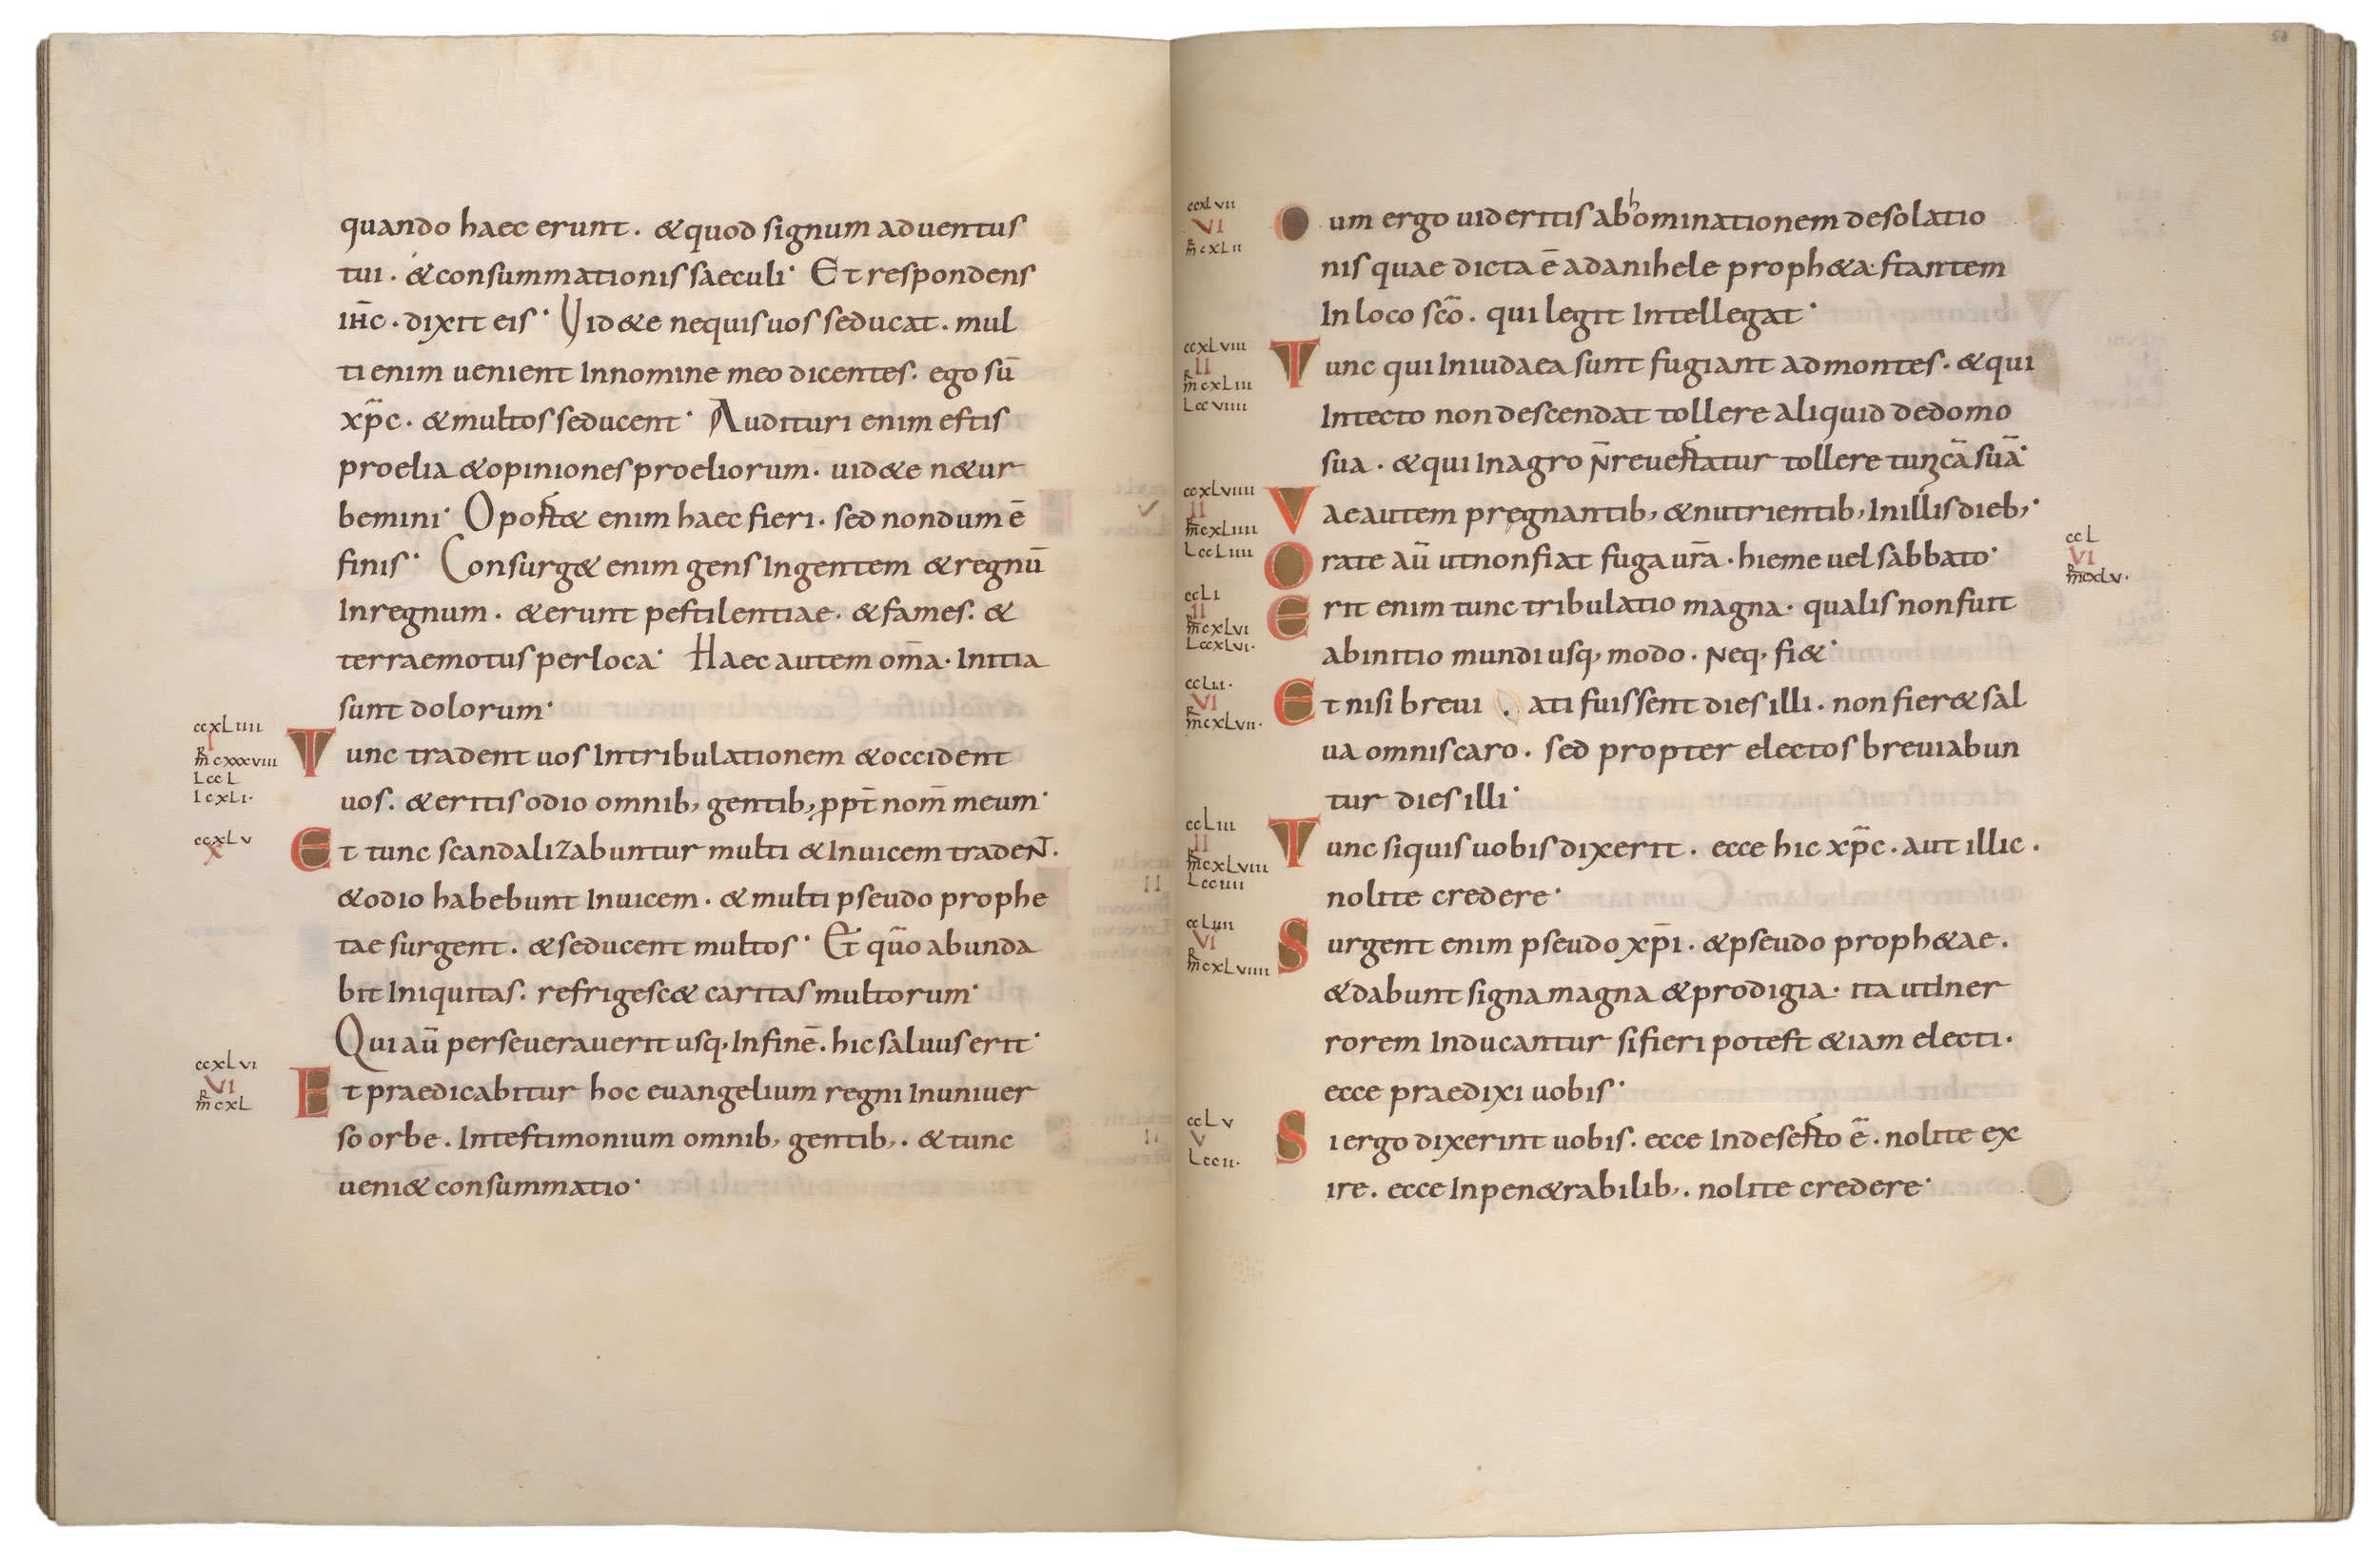 quando haec erunt. & quod signum aduentus
tui. & consummationis saeculi· Et respondens
ih̄c. dixit eis· Vid&e nequis uos seducat. mul
ti enim uenient In nomine meo dicentes. ego sū
xp̄c. & multos seducent· Audituri enim estis
proelia & opiniones proeliorum. uid&e n& ur
bemini· Oport& enim haec fieri. sed nondum ē
finis· Consurg& enim gens In gentem & regnū
In regnum. & erunt pestilentiae. & fames. &
terraemotus per loca· Haec autem om̄a. Initia
sunt dolorum·
ccxLiiii
I
mr cxxxviii
L ccL
I cxLi·
Tunc tradent uos In tribulationem & occident
uos. & eritis odio omnib, gentib, ppt̄ nom̄ meum·
ccxLv
X
Et tunc scandalizabuntur multi & Inuicem tradeNt.
& odio habebunt Inuicem. & multi pseudo prophe
tae surgent. & seducent multos· Et qūo abunda
bit Iniquitas. refrigesc& caritas multorum·
Qui aū perseuerauerit usq, In finē. hic saluus erit·
ccxLvi
VI
mr cxL
Et praedicabitur hoc euangelium regni In uniuer
so orbe. In testimonium omnib, gentib,. & tunc
ueni& consummatio·
58
ccxLvii
VI
mr cxLii
Cum ergo uideritis abhominationem desolatio
nis quae dicta ē a danihele proph&a. stantem
In loco sc̄o. qui legit Intellegat·
ccxLviii
II
mr cxLiii
L ccviiii
Tunc qui In iudaea sunt fugiant ad montes. & qui
In tecto non descendat tollere aliquid de domo
sua. & qui In agro n̄ reuertatur tollere tunicā suā·
ccxLviiii
II
mr cxLiiii
L ccLiiii
Vae autem pregnantib, & nutrientib, In illis dieb,·
Orate aū ut non fiat fuga ur̄a. hieme uel sabbato·
ccL
VI
mr cxLv·
ccLi
II
mr cxLvi
L ccxLvi·
Erit enim tunc tribulatio magna. qualis non fuit
ab initio mundi usq, modo. Neq, fi&·
ccLii·
VI
mr cxLvii·
Et nisi breui . ati fuissent dies illi. non fier& sal
ua omnis caro. sed propter electos breuiabun
tur dies illi·
ccLiii
II
mr cxLviii
L cciiii
Tunc siquis uobis dixerit. ecce hic xp̄c. aut illic.
nolite credere·
ccLiiii
VI
mr cxLviiii
Surgent enim pseudo xp̄i. & pseudo proph&ae.
& dabunt signa magna & prodigia. ita ut In er
rorem Inducantur si fieri potest &iam electi.
ecce praedixi uobis·
ccLv
V
L ccii·
Si ergo dixerint uobis. ecce In deserto ē. nolite ex
ire. ecce In pen&rabilib,. nolite credere·